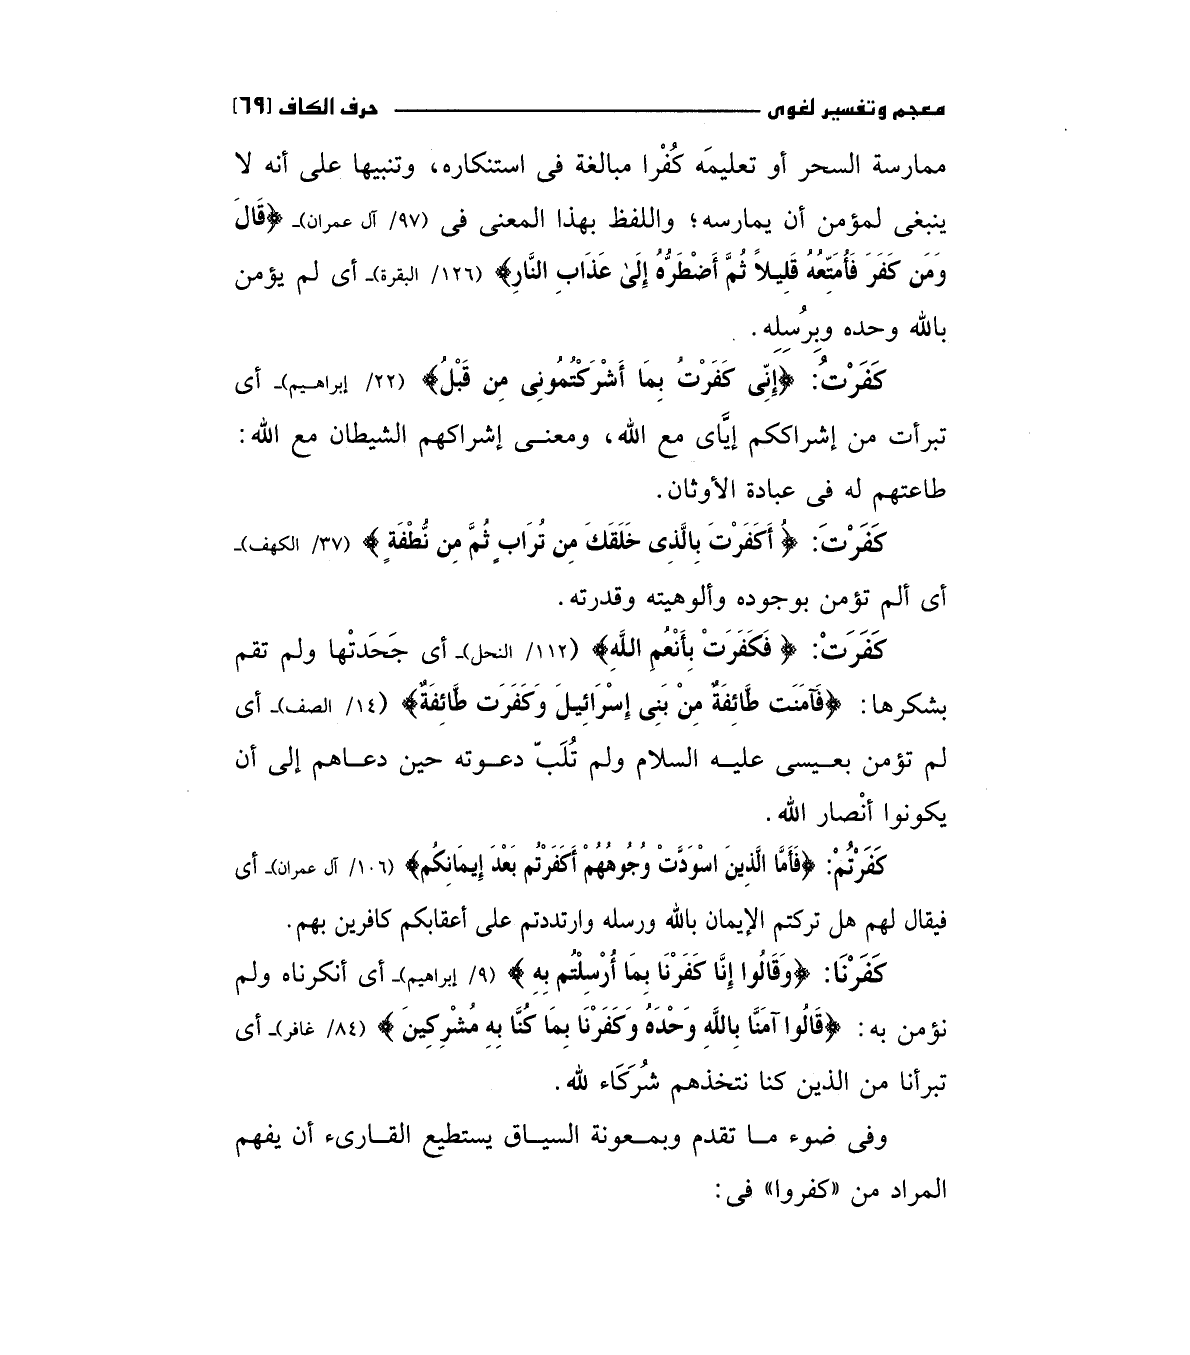 معجم وتفسير لغوى ــــــــــ حرف الكاف [٦٩]
ممارسة السحر أو تعليمَه كُفْرا مبالغة فى استنكاره، وتنبيها على أنه لا
ينبغى لمؤمن أن يمارسه؛ واللفظ بهذا المعنى فى (٩٧/ آل عمران)ـ ﴿قَالَ
وَمَن كَفَرَ فَأُمَتِّعُهُ قَلِيلاً ثُمَّ أَضْطَرُّهُ إِلَىٰ عَذَابِ النَّارِ﴾ (١٢٦/ البقرة)ـ أى لم يؤمن
بالله وحده وبِرُسِلِه.
كَفَرْتُ: ﴿إِنِّى كَفَرْتُ بِمَا أَشْرَكْتُمُونِى مِن قَبْلُ﴾ (٢٢/ إبراهيم)ـ أى
تبرأت من إشراككم إيَّاى مع الله، ومعنى إشراكهم الشيطان مع الله:
طاعتهم له فى عبادة الأوثان.
كَفَرْتَ: ﴿أَكَفَرْتَ بِالَّذِى خَلَقَكَ مِن تُرَابٍ ثُمَّ مِن نُّطْفَةٍ﴾ (٣٧/ الكهف)ـ
أى ألم تؤمن بوجوده وألوهيته وقدرته.
كَفَرَتْ: ﴿فَكَفَرَتْ بِأَنْعُمِ اللَّهِ﴾ (١١٢/ النحل)ـ أى جَحَدَتْها ولم تقم
بشكرها: ﴿فَآمَنَت طَّائِفَةٌ مِنْ بَنِى إِسْرَائِيلَ وَكَفَرَت طَّائِفَةٌ﴾ (١٤/ الصف)ـ أى
لم تؤمن بعيسى عليه السلام ولم تُلَبّ دعوته حين دعاهم إلى أن
يكونوا أنْصار الله.
كَفَرْتُمْ: ﴿فَأَمَّا الَّذِينَ اسْوَدَّتْ وُجُوهُهُمْ أَكَفَرْتُم بَعْدَ إِيمَانِكُم﴾ (١٠٦/ آل عمران)ـ أى
فيقال لهم هل تركتم الإيمان بالله ورسله وارتددتم على أعقابكم كافرين بهم.
كَفَرْنَا: ﴿وَقَالُوا إِنَّا كَفَرْنَا بِمَا أُرْسِلْتُم بِهِ﴾ (٩/ إبراهيم)ـ أى أنكرناه ولم
نؤمن به: ﴿قَالُوا آمَنَّا بِاللَّهِ وَحْدَهُ وَكَفَرْنَا بِمَا كُنَّا بِهِ مُشْرِكِينَ﴾ (٨٤/ غافر)ـ أى
تبرأنا من الذين كنا نتخذهم شُرَكَاء لله.
وفى ضوء ما تقدم وبمعونة السياق يستطيع القارىء أن يفهم
المراد من «كفروا» فى: